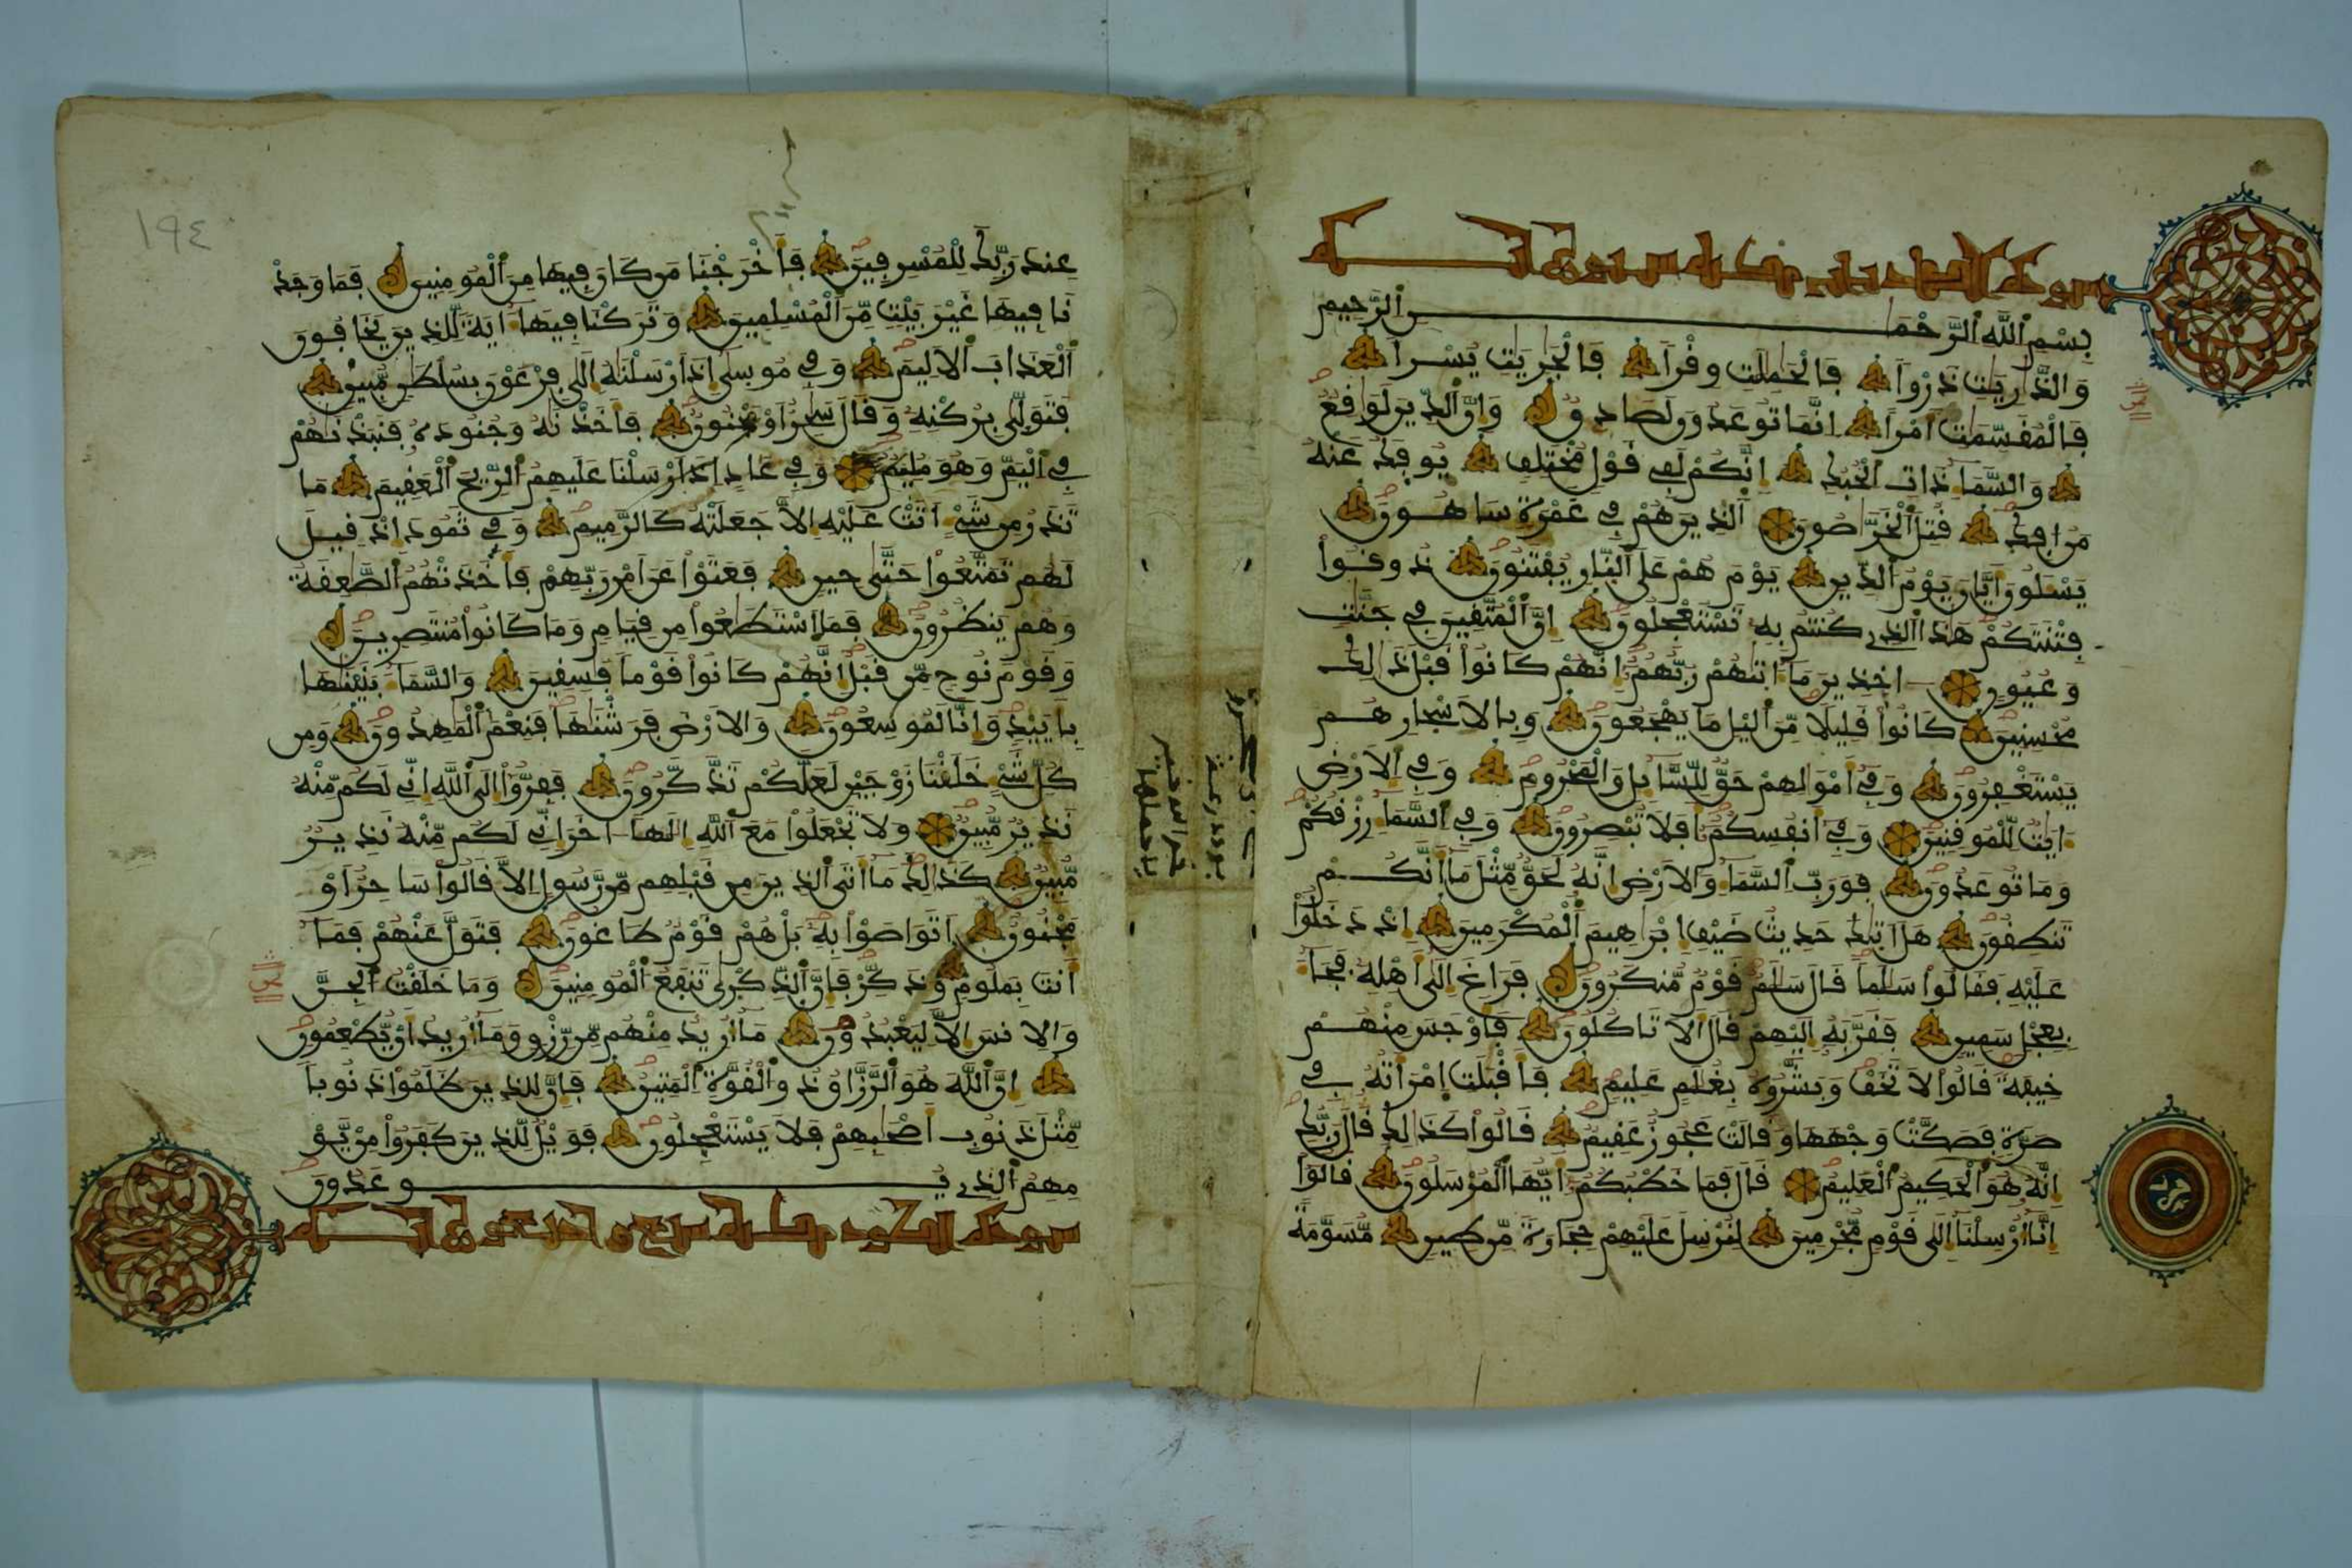 سورة الذاريات مكية ستون آية
بِسْمِ ٱللَّهِ ٱلرَّحْمَٰنِ ٱلرَّحِيمِ
وَالذَّٰرِيَٰتِ ذَرْواً فَالْحَٰمِلَٰتِ وِقْراً فَالْجَٰرِيَٰتِ يُسْراً
فَالْمُقَسِّمَٰتِ أَمْراً إِنَّمَا تُوعَدُونَ لَصَادِقٌ وَإِنَّ ٱلدِّينَ لَوَٰقِعٌ
وَالسَّمَاءِ ذَاتِ ٱلْحُبُكِ إِنَّكُمْ لَفِى قَوْلٍ مُّخْتَلِفٍ يُوفَكُ عَنْهُ
مَنُ افِكَ قُتِلَ ٱلْخَرَّٰصُونَ ٱلذِينَ هُمْ فِى غَمْرَةٍ سَاهُونَ
يَسْـَٔلُونَ أَيَّانَ يَوْمُ ٱلدِّينِ يَوْمَ هُمْ عَلَى ٱلنَّارِ يُفْتَنُونَ ذُوقُواْ
فِتْنَتَكُمْ هَٰذَا ٱلذِى كُنتُم بِهِ تَسْتَعْجِلُونَ إِنَّ ٱلْمُتَّقِينَ فِى جَنَّٰتٍ
وَعُيُونٍ ـاخِذِينَ مَا ءَاتَٰهُمْ رَبُّهُمْ إِنَّهُمْ كَانُواْ قَبْلَ ذَٰلِكَ
مُحْسِنِينَ كَانُواْ قَلِيلاً مِّنَ ٱليْلِ مَا يَهْجَعُونَ وَبِالَاسْحِارِ هُمْ
يَسْتَغْفِرُونَ وَفِى أَمْوَٰلِهِمْ حَقٌّ لِّلسَّائِلِ وَالْمَحْرُومِ وَفِى ٱلَارْضِ
ءَايَٰتٌ لِّلْمُوقِنِينَ وَفِى أَنفُسِكُمُ أَفَلَا تُبْصِرُونَ وَفِى ٱلسَّمَاءِ رِزْقُكُمْ
وَمَا تُوعَدُونَ فَوَرَبِّ ٱلسَّمَاءِ وَالَارْضِ إِنَّهُ لَحَقٌّ مِّثْلَ مَا أَنَّكُمْ
تَنطِقُونَ هَلَ اتَىٰكَ حَدِيثُ ضَيْفِ إِبْرَٰهِيمَ ٱلْمُكْرَمِينَ إِذْ دَخَلُواْ
عَلَيْهِ فَقَالُواْ سَلَٰماً قَالَ سَلَٰمٌ قَوْمٌ مُّنكَرُونَ فَرَاغَ إِلَىٰ أَهْلِهِ فَجَاءَ
بِعِجْلٍ سَمِينٍ فَقَرَّبَهُ إِلَيْهِمْ قَالَ أَلَا تَاكُلُونَ فَأَوْجَسَ مِنْهُمْ
خِيفَةً قَالُواْ لَا تَخَفْ وَبَشَّرُوهُ بِغُلَٰمٍ عَلِيمٍ فَأَقْبَلَتِ إِمْرَأَتُهُ فِى
صَرَّةٍ فَصَكَّتْ وَجْهَهَا وَقَالَتْ عَجُوزٌ عَقِيمٌ قَالُواْ كَذَٰلِكَ قَالَ رَبُّكِ
إِنَّهُ هُوَ ٱلْحَكِيمُ ٱلْعَلِيمُ قَالَ فَمَا خَطْبُكُمُ أَيُّهَا ٱلْمُرْسَلُونَ قَالُواْ
إِنَّا أُرْسِلْنَا إِلَىٰ قَوْمٍ مُّجْرِمِينَ لِنُرْسِلَ عَلَيْهِمْ حِجَارَةً مِّن طِينٍ مُّسَوَّمَةً
١٩٤
عِندَ رَبِّكَ لِلْمُسْرِفِينَ فَأَخْرَجْنَا مَن كَانَ فِيهَا مِنَ ٱلْمُومِنِينَ فَمَا وَجَدْ
نَا فِيهَا غَيْرَ بَيْتٍ مِّنَ ٱلْمُسْلِمِينَ وَتَرَكْنَا فِيهَا ءَايَةً لِّلذِينَ يَخَافُونَ
ٱلْعَذَابَ ٱلَالِيمَ وَفِى مُوسَىٰ إِذَ ارْسَلْنَٰهُ إِلَىٰ فِرْعَوْنَ بِسُلْطَٰنٍ مُّبِينٍ
فَتَوَلَّىٰ بِرُكْنِهِ وَقَالَ سَٰحِرٌ أَوْ مَجْنُونٌ فَأَخَذْنَٰهُ وَجُنُودَهُ فَنَبَذْنَٰهُمْ
فِى ٱلْيَمِّ وَهُوَ مُلِيمٌ وَفِى عَادٍ إِذَ ارْسَلْنَا عَلَيْهِمُ ٱلرِّيحَ ٱلْعَقِيمَ مَا
تَذَرُ مِن شَىْءٍ أَتَتْ عَلَيْهِ إِلَّا جَعَلَتْهُ كَالرَّمِيمِ وَفِى ثَمُودَ إِذْ قِيلَ
لَهُمْ تَمَتَّعُواْ حَتَّىٰ حِينٍ فَعَتَوْاْ عَنَ امْرِ رَبِّهِمْ فَأَخَذَتْهُمُ ٱلصَّٰعِقَةُ
وَهُمْ يَنظُرُونَ فَمَا ٱسْتَطَٰعُواْ مِن قِيَامٍ وَمَا كَانُواْ مُنتَصِرِينَ
وَقَوْمَ نُوحٍ مِّن قَبْلُ إِنَّهُمْ كَانُواْ قَوْماً فَٰسِقِينَ وَالسَّمَاءَ بَنَيْنَٰهَا
بِأَيْيْدٍ وَإِنَّا لَمُوسِعُونَ وَالَارْضَ فَرَشْنَٰهَا فَنِعْمَ ٱلْمَٰهِدُونَ وَمِن
كُلِّ شَىْءٍ خَلَقْنَا زَوْجَيْنِ لَعَلَّكُمْ تَذَّكَّرُونَ فَفِرُّواْ إِلَى ٱللَّهِ إِنِّى لَكُم مِّنْهُ
نَذِيرٌ مُّبِينٌ وَلَا تَجْعَلُواْ مَعَ ٱللَّهِ إِلَٰهاً ـاخَرَ إِنِّى لَكُم مِّنْهُ نَذِيرٌ
مُّبِينٌ كَذَٰلِكَ مَا أَتَى ٱلذِينَ مِن قَبْلِهِم مِّن رَّسُولٍ إِلَّا قَالُواْ سَاحِرٌ أَوْ
مَجْنُونٌ أَتَوَاصَوْاْ بِهِ بَلْ هُمْ قَوْمٌ طَاغُونَ فَتَوَلَّ عَنْهُمْ فَمَا
أَنتَ بِمَلُومٍ وَذَكِّرْ فَإِنَّ ٱلذِّكْرَىٰ تَنفَعُ ٱلْمُومِنِينَ وَمَا خَلَقْتُ ٱلْجِنَّ
وَالِانسَ إِلَّا لِيَعْبُدُونِ مَا أُرِيدُ مِنْهُم مِّن رِّزْقٍ وَمَا أُرِيدُ أَنْ يُّطْعِمُونِ
إِنَّ ٱللَّهَ هُوَ ٱلرَّزَّاقُ ذُو ٱلْقُوَّةِ ٱلْمَتِينُ فَإِنَّ لِلذِينَ ظَلَمُواْ ذَنُوباً
مِّثْلَ ذَنُوبِ أَصْحَٰبِهِمْ فَلَا يَسْتَعْجِلُونِ فَوَيْلٌ لِّلذِينَ كَفَرُواْ مِنْ يَّوْ
مِهِمُ ٱلذِى يُوعَدُونَ
سورة الطور مكية سبع وأربعون آية